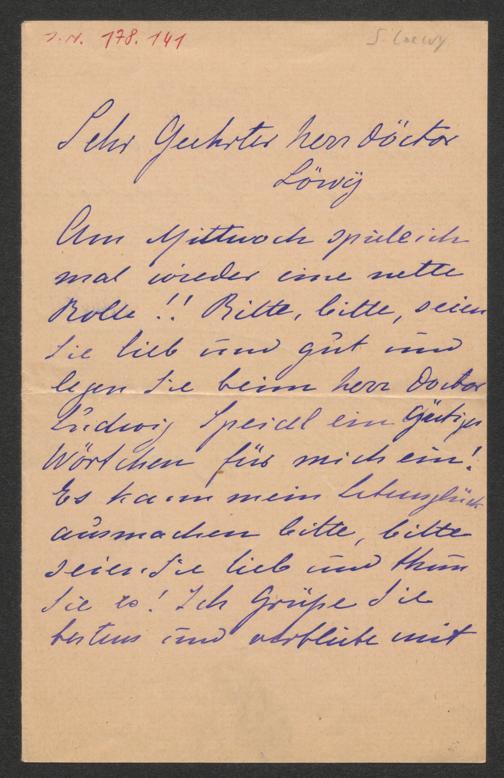 J. N. 178.141
S. Loewy
Sehr Geehrter herr Döctor
Löwÿ
Am Mittwoch spiele ich
mal wieder eine nette
Rolle!! Bitte, bitte, seien
Sie lieb und gut und
legen Sie beim herr Doctor
Ludwig Speidl ein Gütiges
Wörtchen für mich ein!
Es kann mein Lebensglück
ausmachen bitte, bitte
seien Sie lieb und thun
Sie es! Ich Grüße Sie
bestens und verbliebe mit